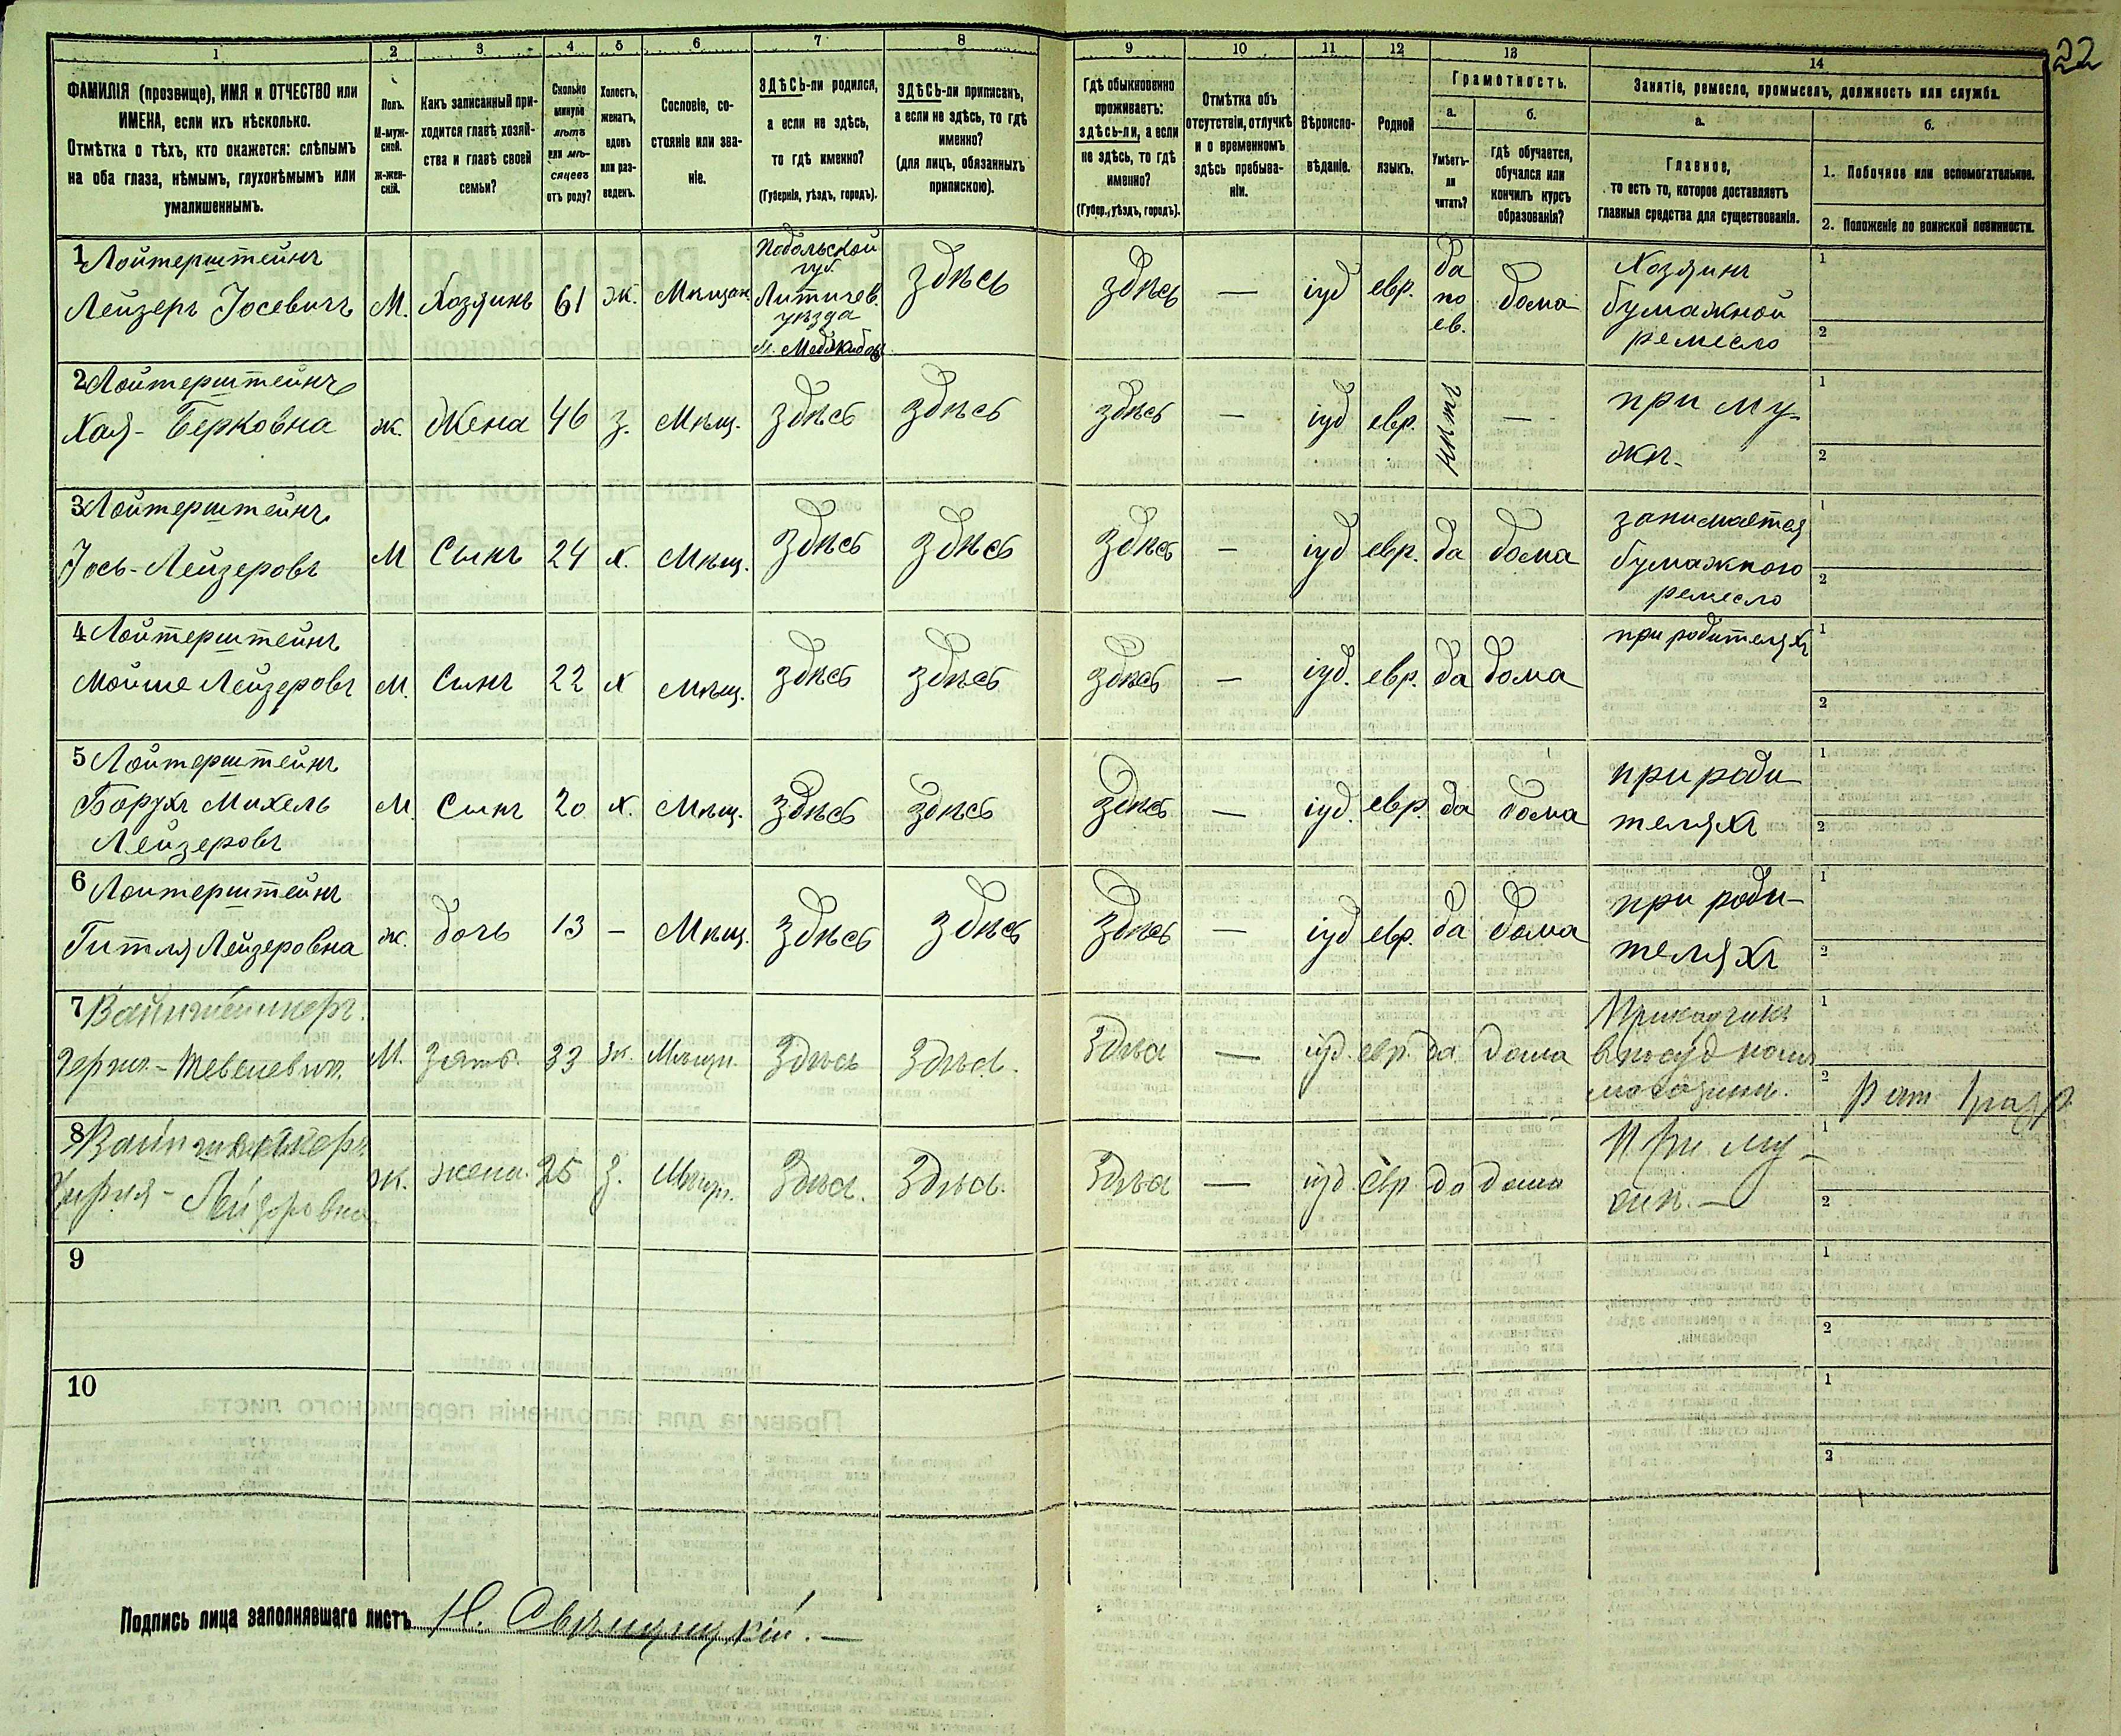 22
1 2 3 4 5 6 7 8 9 10 11 12 13 14
ФАМИЛІЯ (прозвище), ИМЯ и ОТЧЕСТВО или
ИМЕНА, если ихъ нѣсколько.
Отмѣтка о тѣхъ, кто окажется: слѣпымъ
на оба глаза, нѣмымъ, глухонѣмымъ или
умалишеннымъ.
Полъ.
М-муж-
ской.
ж-жен-
скій.
Какъ записанный при-
ходится главѣ хозяй-
ства и главѣ своей
семьи?
Сколько
минуло
лѣтъ
или мѣ-
сяцевъ
отъ роду?
Холостъ,
женатъ,
вдовъ
или раз-
веденъ.
Сословіе, со-
стояніе или зва-
ніе.
ЗДѢСЬ-ли родился,
а если не здѣсь,
то гдѣ именно?
(Губернія, уѣздъ, городъ).
ЗДѢСЬ-ли приписанъ,
а если не здѣсь, то гдѣ
именно?
(для лицъ, обязанныхъ
припискою).
Гдѣ обыкновенно
проживаетъ:
здѣсь-ли, а если
не здѣсь, то гдѣ
именно?
(Губер., уѣздъ, городъ).
Отмѣтка объ
отсутствіи, отлучкѣ
и о временномъ
здѣсь пребыва-
ніи.
Вѣроиспо-
вѣданіе.
Родной
языкъ.
Грамотность.
а.
Умѣетъ-
ли
читать?
б.
Гдѣ обучается,
обучался или
кончилъ курсъ
образованія?
Занятіе, ремесло, промыселъ, должность или служба.
а.
Главное,
то есть то, которое доставляетъ
главныя средства для существованія.
б.
1. Побочное или вспомогательное.
2. Положеніе по воинской повинности.
1 Лойтерштейнъ
Лейзеръ Іосевичъ М. Хозяинъ 61 ж. Мѣщан.
Подольской
губ.
Литичев.
уѣзда
м. Меджибож
здѣсь здѣсь — іуд евр.
да
по
ев.
дома
Хозяинъ
бумажной
ремесло
1
2
2 Лойтерштейнъ
Хая-Берковна ж. Жена 46 з. Мѣщ. здѣсь здѣсь здѣсь — іуд евр. нѣтъ —
при му-
жѣ-
1
2
3 Лойтерштейнъ
Іось-Лейзеровъ М Сынъ 24 х. Мѣщ. здѣсь здѣсь здѣсь — іуд евр. да дома
занимается
бумажного
ремесло
1
2
4 Лойтерштейнъ
Мойше Лейзеровъ М. Сынъ 22 х Мѣщ. здѣсь здѣсь здѣсь — іуд. евр. да дома
при родителяхъ
1
2
5 Лойтерштейнъ
Борухъ Михель
Лейзеровъ
М. Сынъ 20 х. Мѣщ. здѣсь здѣсь здѣсь — іуд. евр. да дома
при роди
теляхъ
1
2
6 Лойтерштейнъ
Гитля Лейзеровна ж. дочь 13 — Мѣщ. здѣсь здѣсь здѣсь — іуд евр. да дома
при роди-
теляхъ
1
2
7
М. зять. 33 ж. Мѣщ. Здѣсь Здѣсь. Здѣсь — іуд. евр. да дома
Прикащикъ
1
2
8
Лейзеровна ж. жена. 25 з. Мѣщ. Здѣсь. Здѣсь. Здѣсь — іуд. евр. да дома
При му-
жѣ.—
1
2
9
1
2
10
1
2
Подпись лица заполнявшаго листъ Н. Свѣнцицкій.—